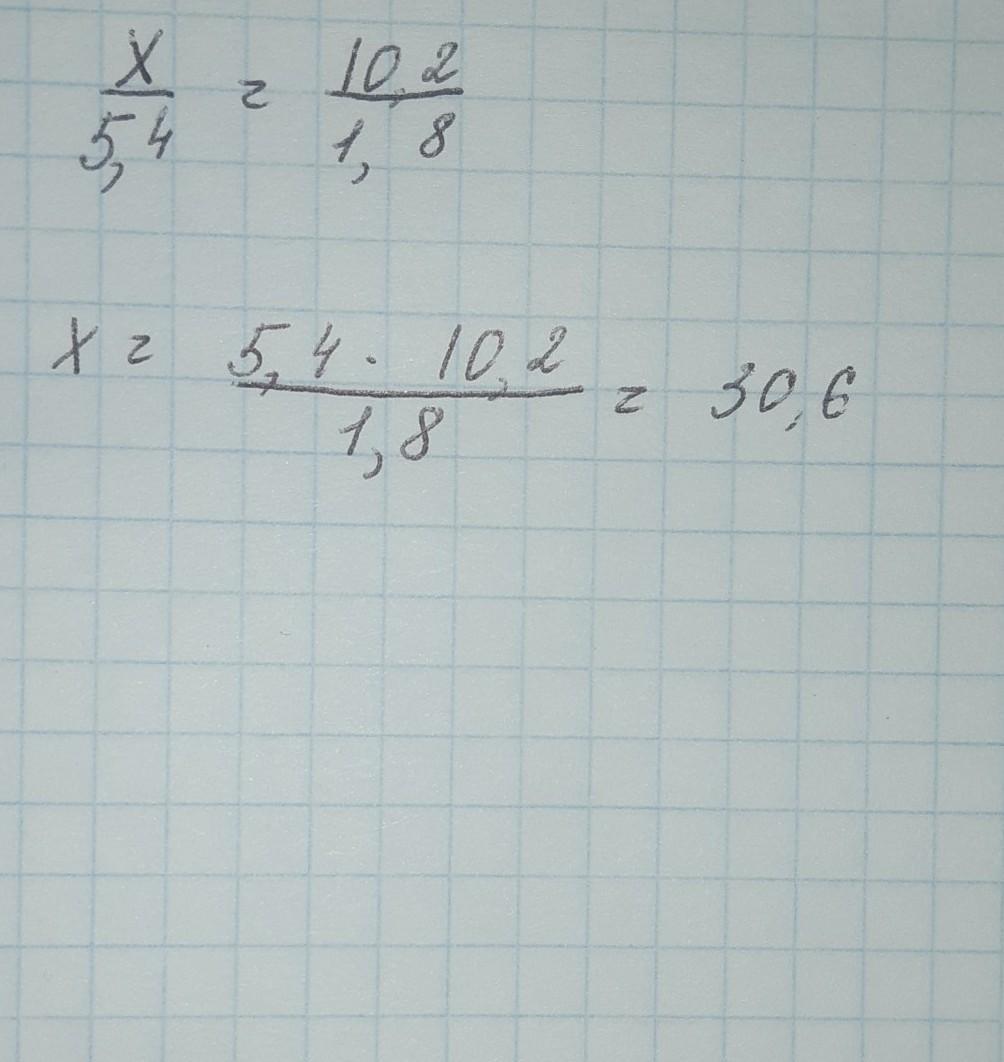 x/5,4 = 10,2/1,8
x = 5,4 · 10,2/1,8 = 30,6